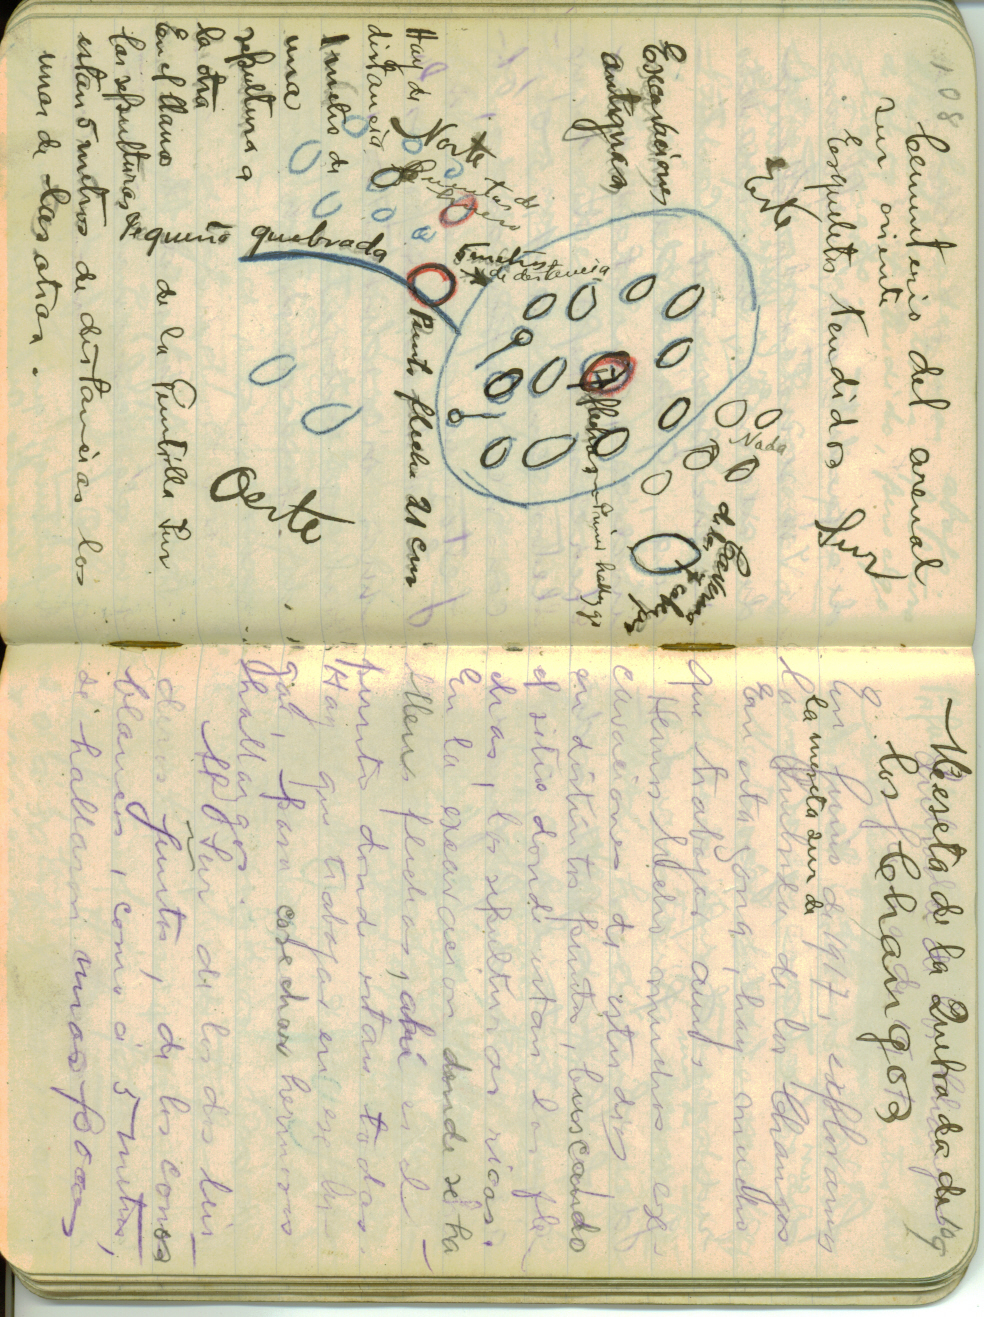 108
Cementerio del arenal
sur oriente
Esqueletos tendidos
Sur
Este
Escavaciones
antiguas
Nada
Norte
Puntas de
5 metros
de distancia
flechas
Punta flecha 21 cm
Hay de
distancia
1 metro de
una
sepultura a
la otra
En el llano
las sepulturas
están 5 metros de distancias los
unos de las otras.
Pequeña quebrada
de la Puntilla Sur
Oeste
109
Meseta de la Quebrada de
los Changos
En Junio de 1917, exploramos
la meseta sur de
la Quebrada de los Changos
En esta zona, hay mucho
que trabajar aún
Hemos hecho muchas esca
vaciones de estos días
en distintos puntos, buscando
el sitio donde estan las fle
chas, las sepulturas ricas.
En la escavacion donde se ha
llem flechas, ahí es el
punto donde estan todas.
Hay que trabajar en ese lu-
gar, para cosechar hermosos
hallazgos.
Al Sur de los dos
juntos, de los conos
blancos, como a 5 metros,
se hallaron unas pocas